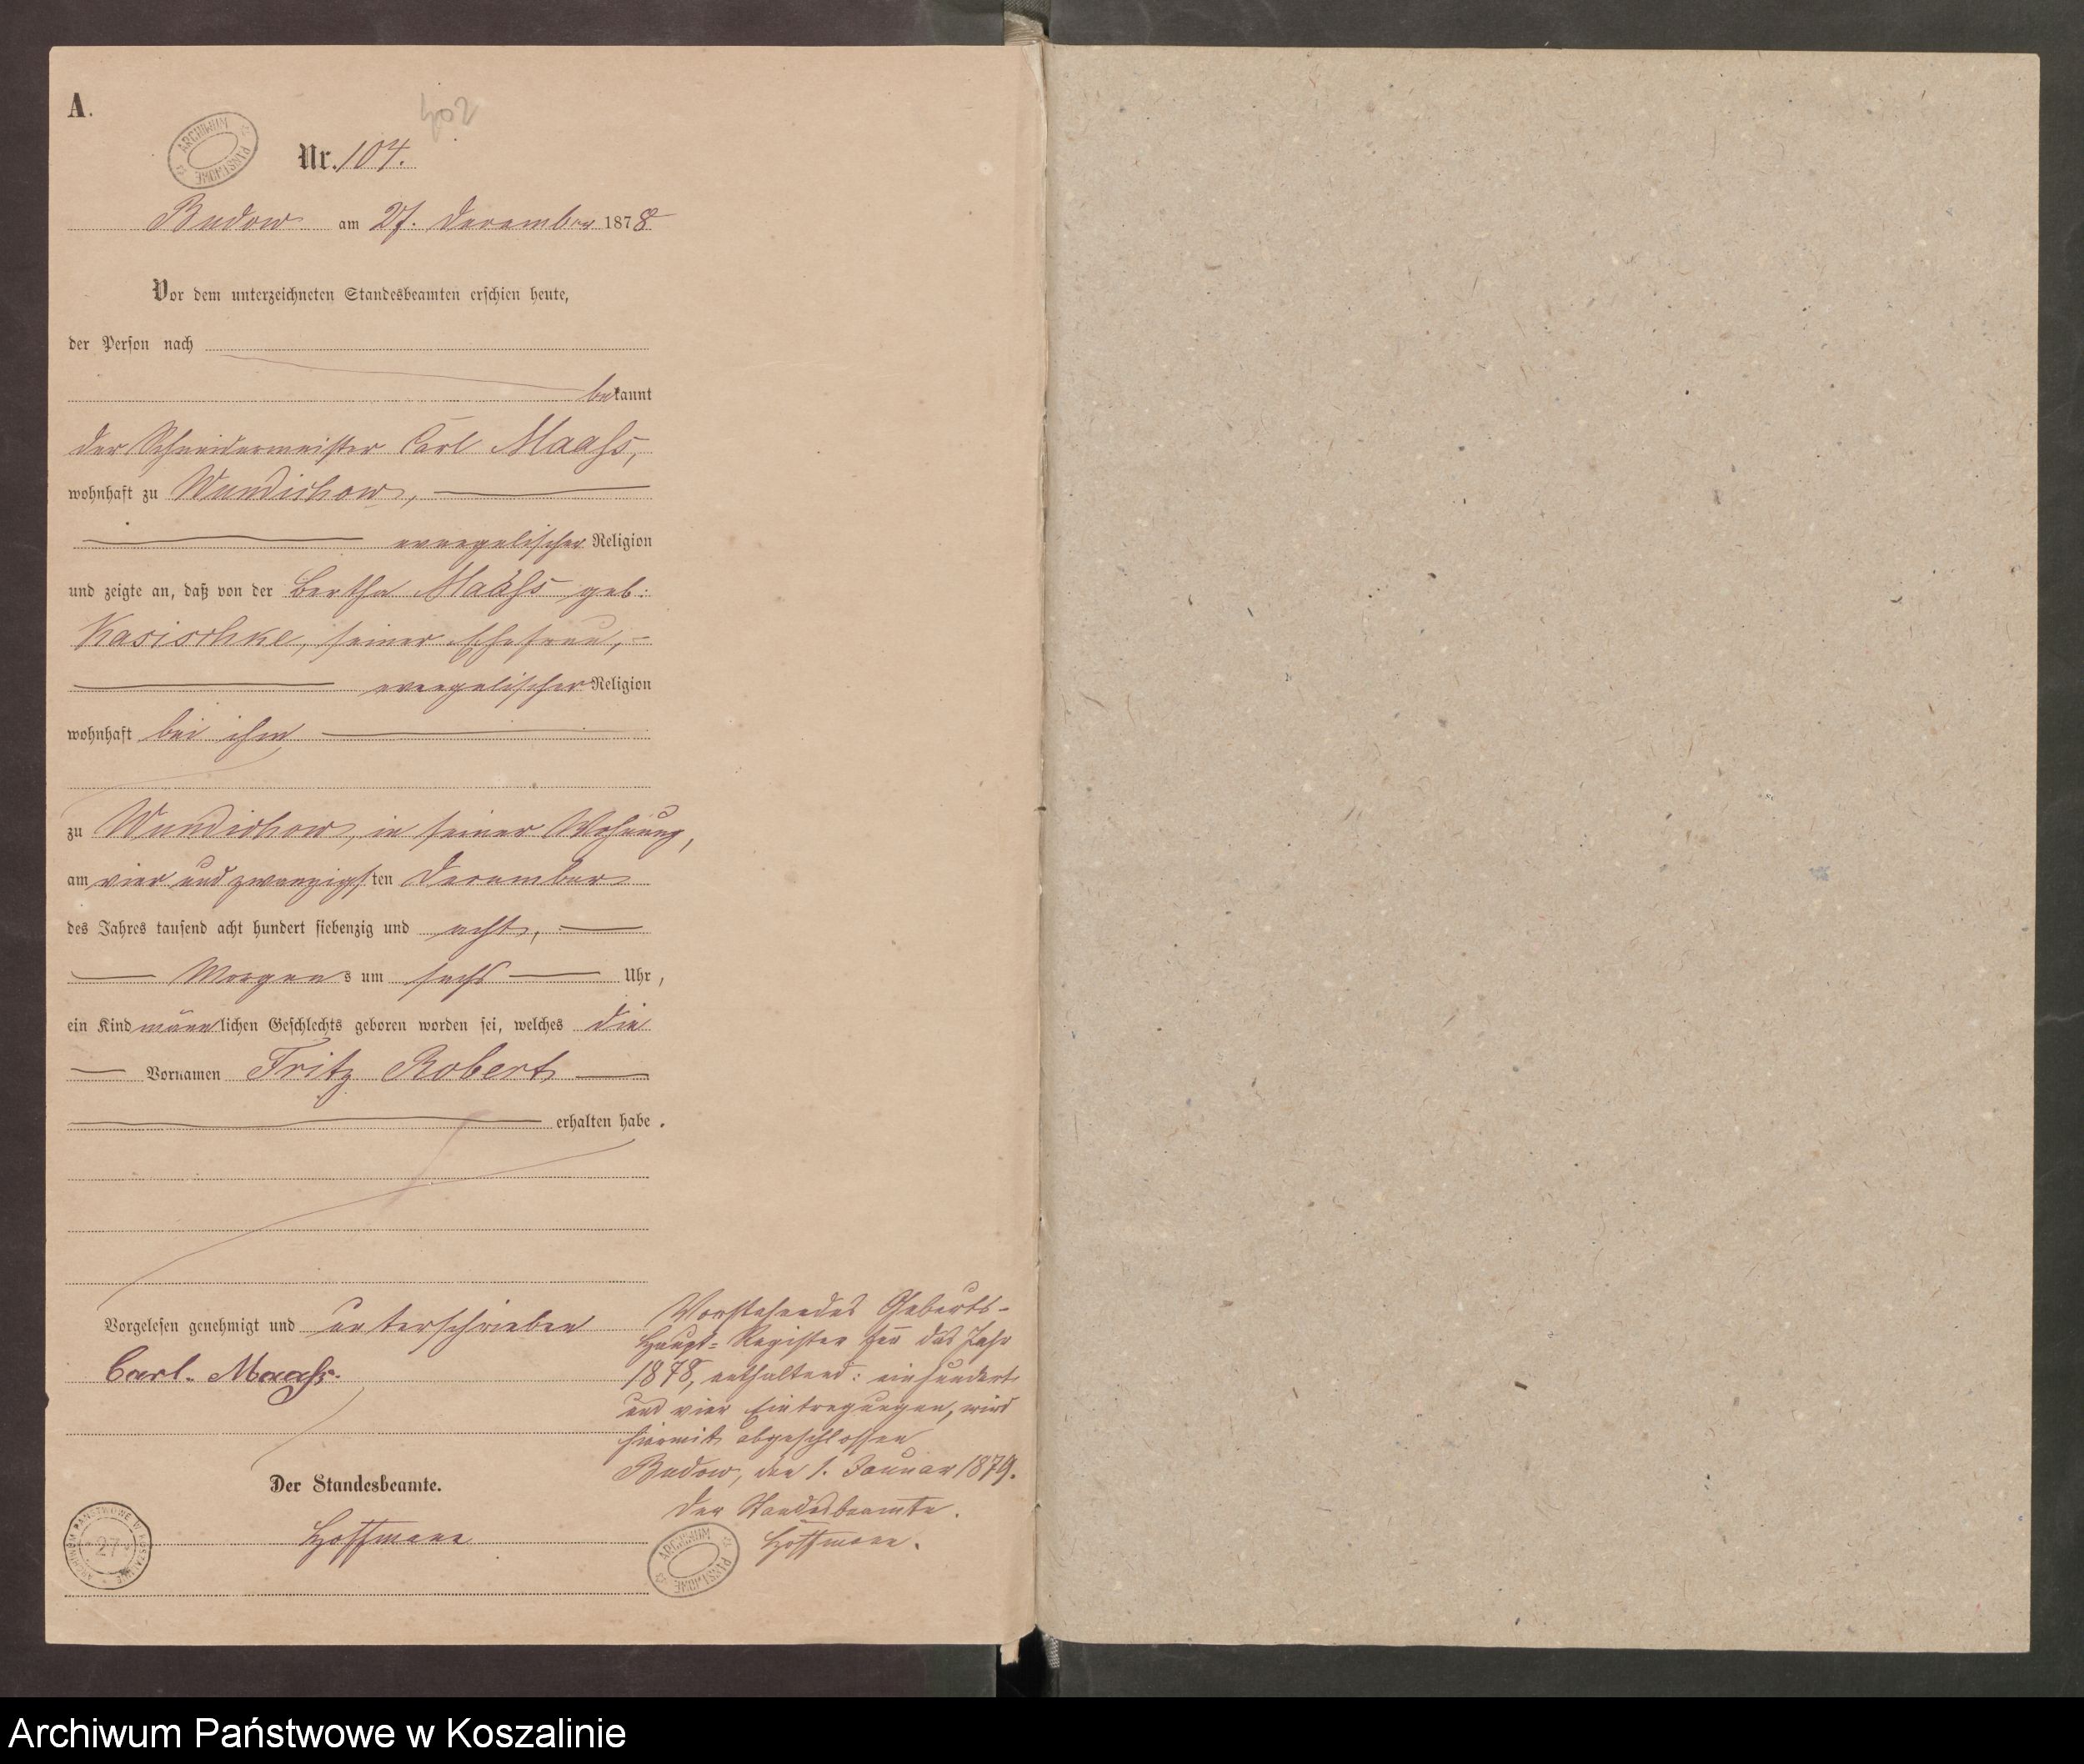 A.
402
ARCHIWUM PAŃSTWOWE
Nr. 104.
Budow am 27. December 1878
Vor dem unterzeichneten Standesbeamten erschien heute,
der Person nach
bekannt
der Schneidermeister Carl Maaß,
wohnhaft zu Wundichow,
evangelischer Religion
und zeigte an, daß von der Bertha Maaß geb:
Kasischke, seiner Ehefrau,
evangelischer Religion
wohnhaft bei ihm
zu Wundichow, in seiner Wohnung,
am vier und zwanzigsten December
des Jahres tausend acht hundert siebenzig und acht,
Morgens um sechs Uhr,
ein Kind männlichen Geschlechts geboren worden sei, welches die
Vornamen Fritz Robert
erhalten habe.
Vorgelesen genehmigt und unterschrieben
Carl Maaß.
Der Standesbeamte.
Hoffmann
ARCHIWUM PAŃSTWOWE W KOSZALINIE
27
Vorstehendes Geburts-
Haupt-Register für das Jahr
1878, enthaltend: einhundert
und vier Eintragungen, wird
hiermit abgeschlossen
Budow, den 1. Januar 1879.
Der Standesbeamte.
Hoffmann.
ARCHIWUM PAŃSTWOWE
Archiwum Państwowe w Koszalinie